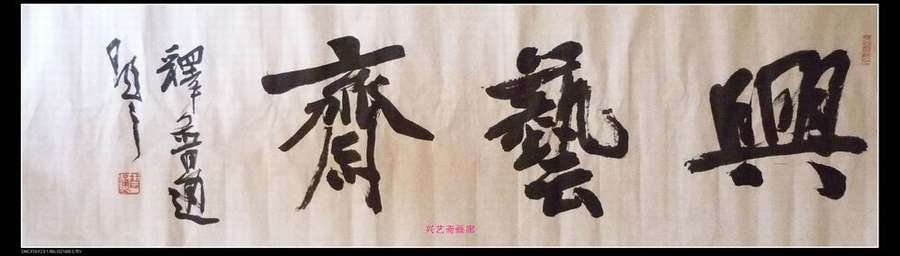 興藝齋
釋普通
題之
兴艺斋画廊